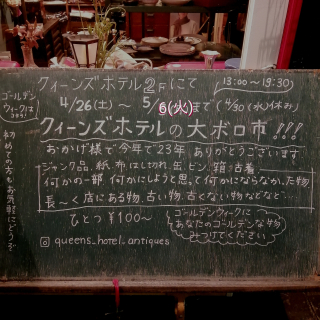 クィーンズホテル2Fにて
13:00〜19:30
ゴールデン
ウィークは
コチラ!
4/26(土)〜 5/6(火)まで (4/30(水)休み)
クィーンズホテルの大ボロ市!!!
おかげ様で今年で23年 ありがとうございます
ジャンク品、紙、布はし切れ、缶、ビン、箱、古着
何かの一部、何かにしようと思って何かにならなかった物
長〜く店にある物、古い物、古くない物などなど…
ひとつ¥100〜
ゴールデンウィークに
あなたのゴールデンな物
みつけてください
初めての方もお気軽にどうぞ
queens_hotel_antiques